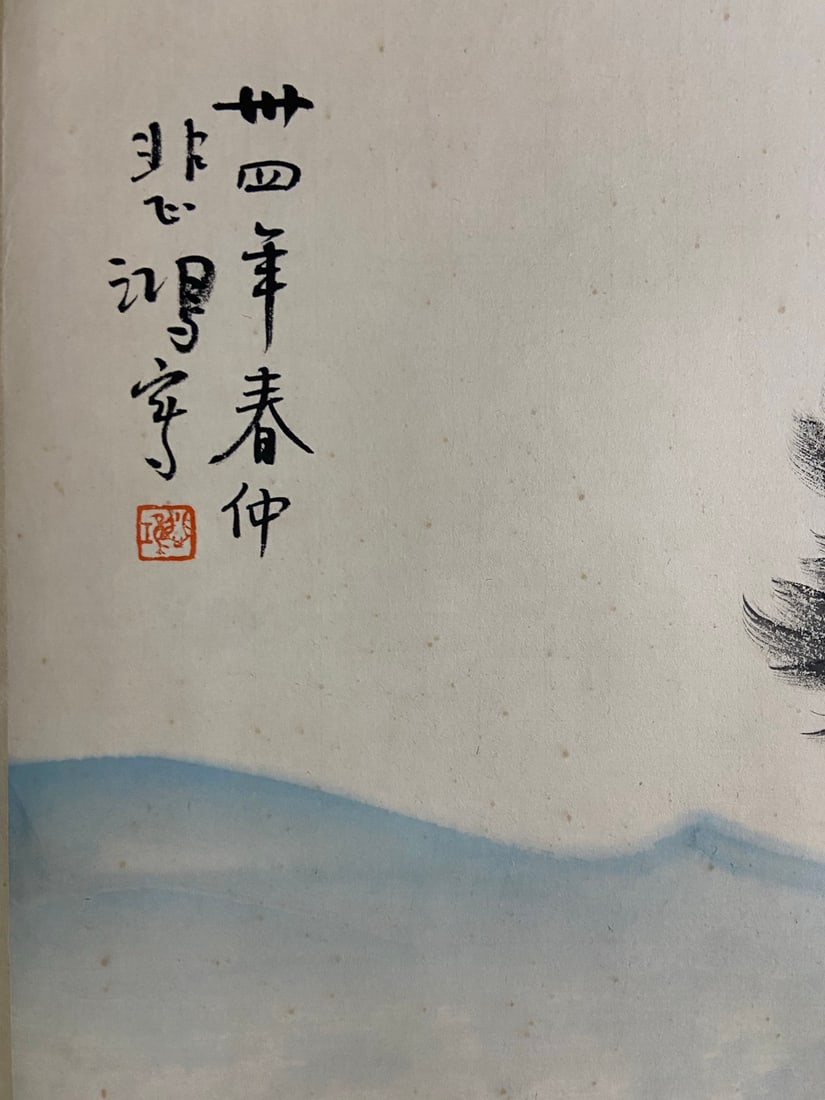 卅四年春仲
悲鴻寫